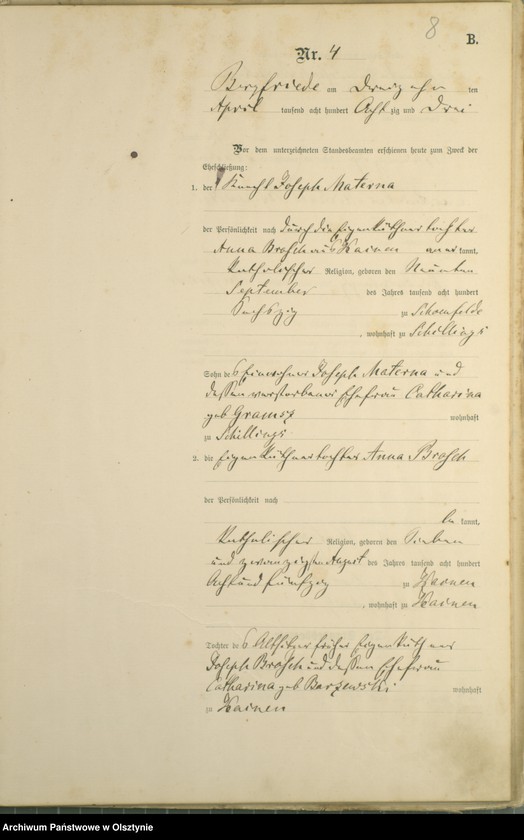 8
B.
Nr. 4
Bergfriede am Dreizehn ten
April tausend acht hundert Acht zig und Drei
Vor dem unterzeichneten Standesbeamten erschienen heute zum Zweck der
Eheschließung:
1. der Knecht Joseph Materna
der Persönlichkeit nach durch die Eigenkäthnertochter
Anna Brosch aus Hainen anerkannt,
katholischer Religion, geboren den Neunten
September des Jahres tausend acht hundert
Sechszig zu Schoenfelde
, wohnhaft zu Schillings
Sohn des Einwohner Joseph Materna und
dessen verstorbener Ehefrau Catharina
geb Gramsz wohnhaft
zu Schillings
2. die Eigenkäthnertochter Anna Brosch
der Persönlichkeit nach
be kannt,
katholischer Religion, geboren den Sieben
und zwanzigsten August des Jahres tausend acht hundert
Acht und fünfzig zu Hainen
, wohnhaft zu Hainen
Tochter des Altsitzer früher Eigenkäthner
Joseph Brosch und dessen Ehefrau
Catharina geb Barzewski wohnhaft
zu Hainen
Archiwum Państwowe w Olsztynie